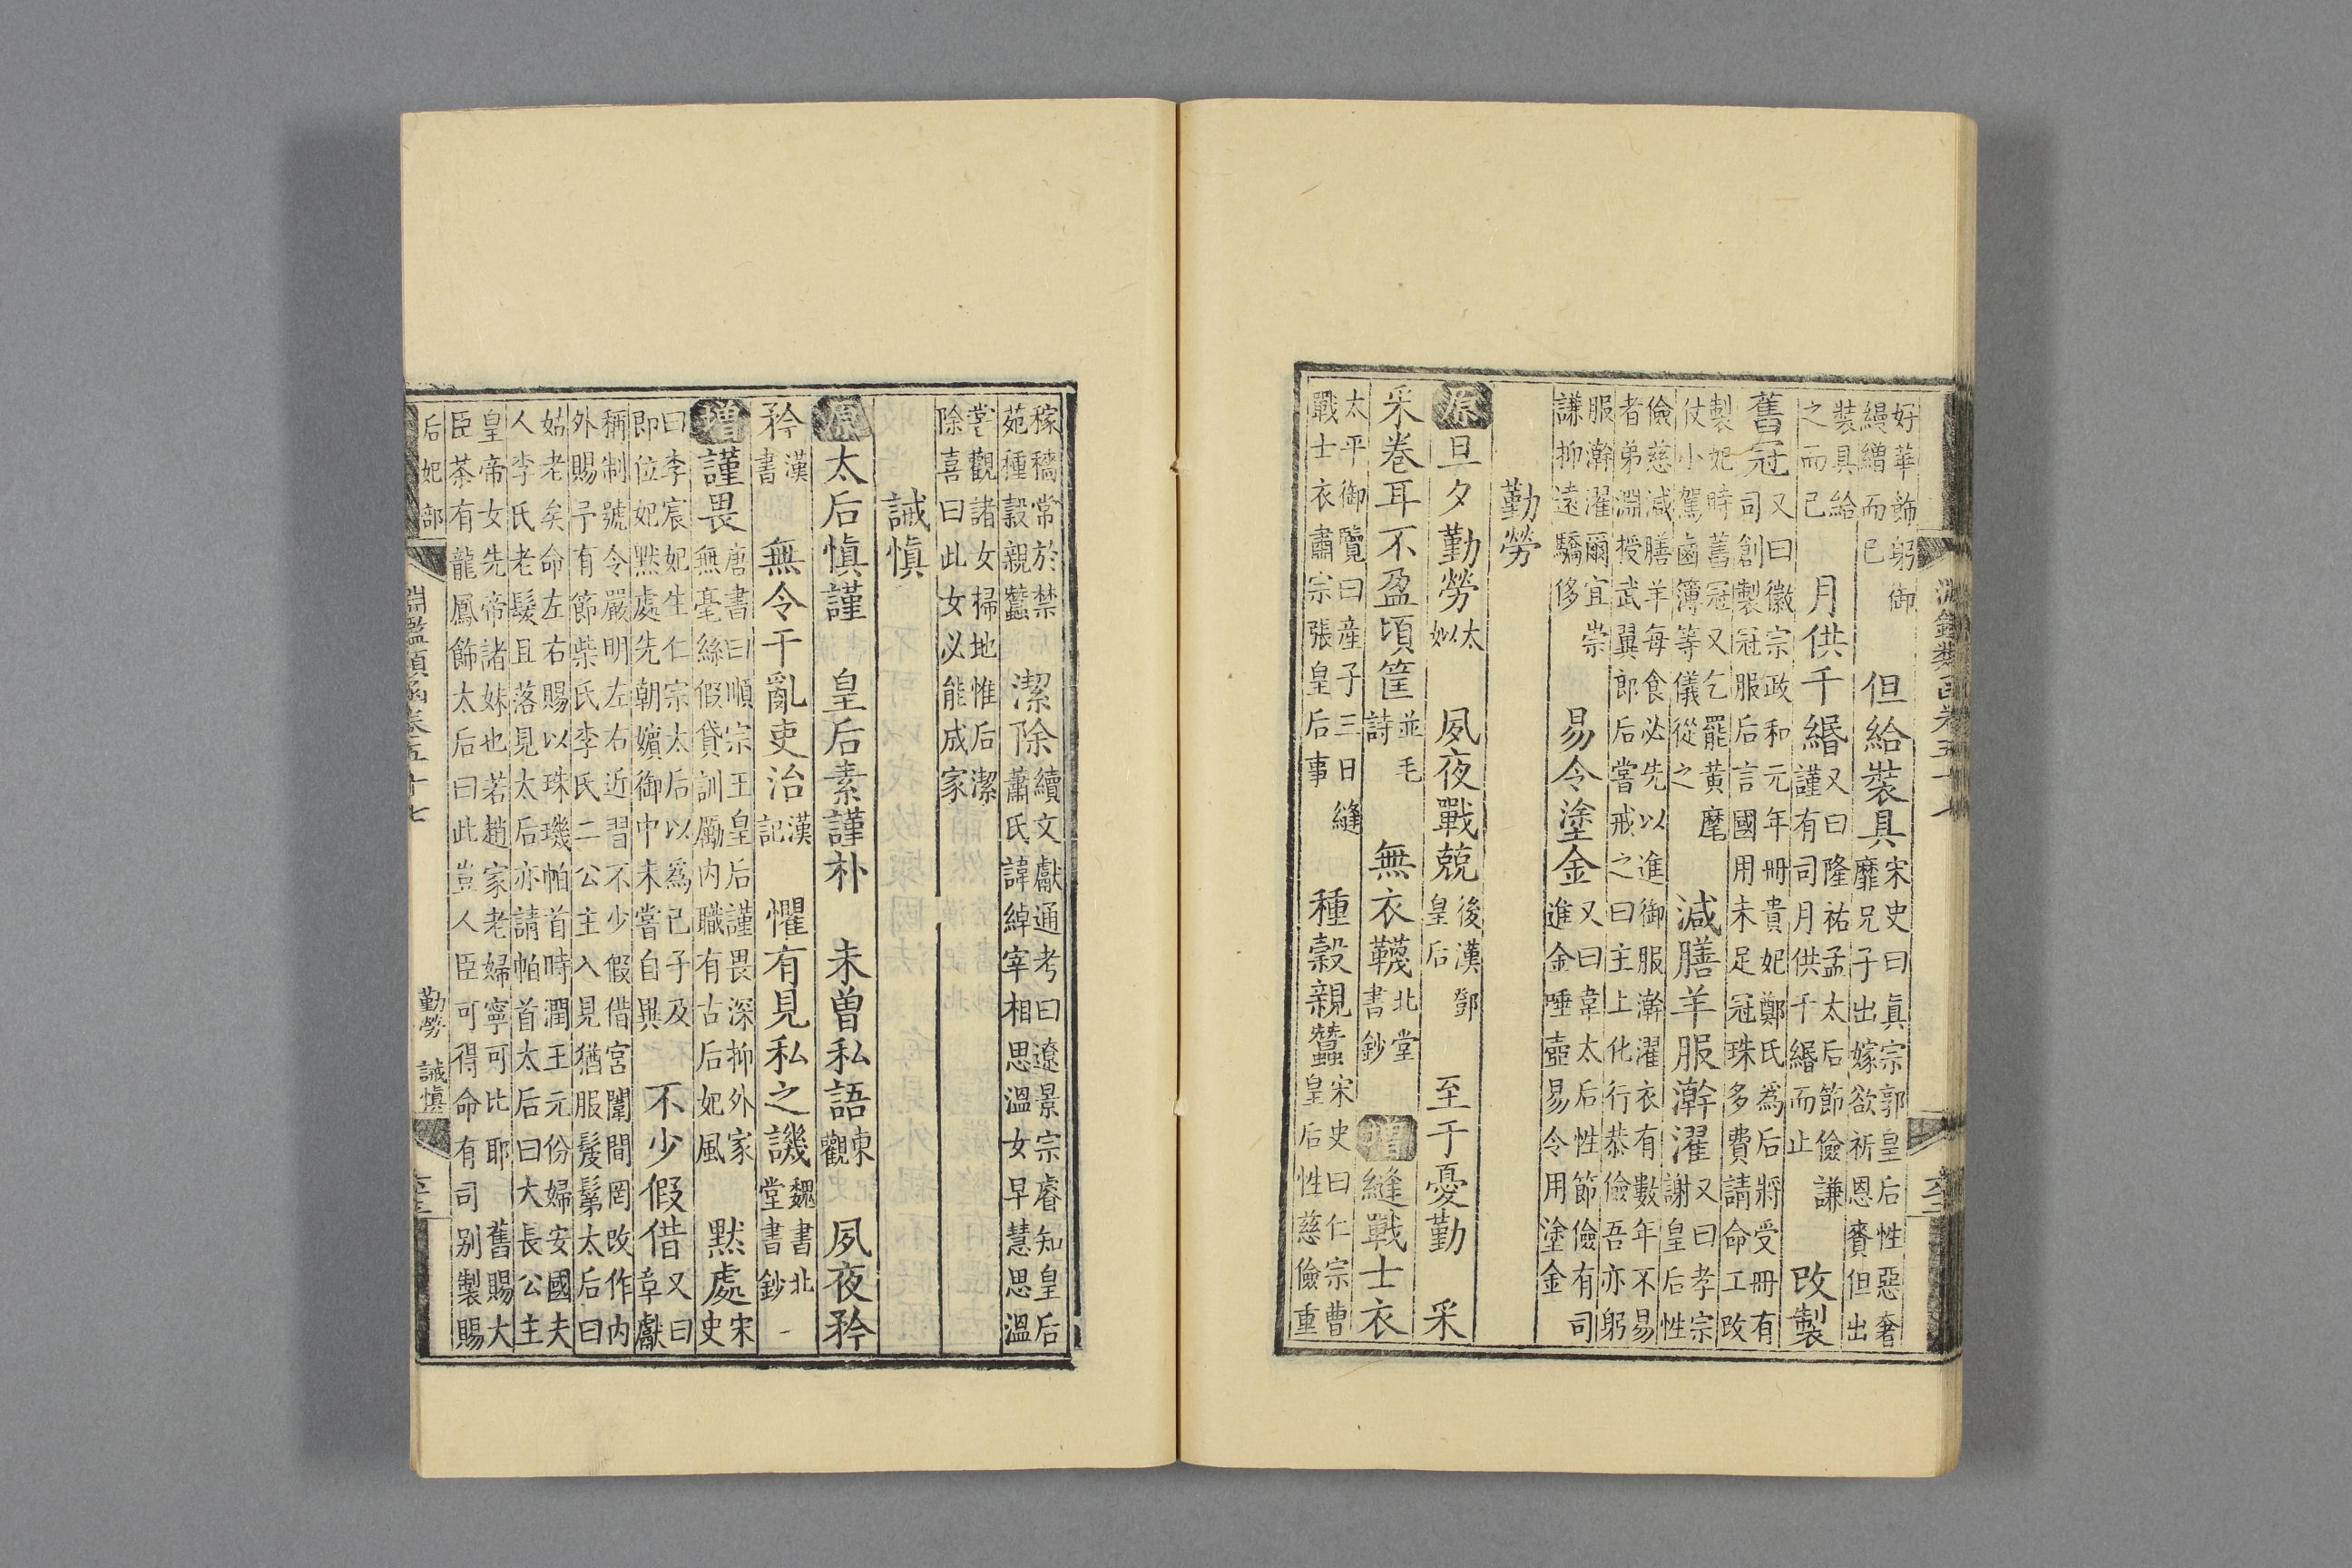 好華飾躬御縵繒而已　但給裝具宋史曰真宗郭皇后性惡奢靡兄子出嫁欲祈恩賚但出
裝具給之而已　月供千緡又曰隆祐孟太后節儉謙謹有司月供千緡而止　改製
舊冠又曰徽宗政和元年冊貴妃鄭氏為后將受冊有司創製冠服后言國用未足冠珠多費請命工改
製妃時舊冠又乞罷黃麾仗小駕鹵簿等儀從之　減膳羊服澣濯又曰孝宗謝皇后性
儉慈減膳羊每食必先以進御服澣濯衣有數年不易者弟淵授武翼郎后當戒之曰主上化行恭儉吾亦躬
服澣濯爾宜崇謙抑遠驕侈　易令塗金又曰韋太后性節儉有司進金唾壺易令用塗金
勤勞
原旦夕勤勞太姒　夙夜戰兢後漢鄧皇后　至于憂勤　采
采卷耳不盈頃筐並毛詩　無衣韈北堂書鈔　增縫戰士衣
太平御覽曰產子三日縫戰士衣肅宗張皇后事　種穀親蠶宋史曰仁宗曹皇后性慈儉重
稼穡常於禁苑種穀親蠶　潔除續文獻通考曰遼景宗睿知皇后蕭氏諱綽宰相思溫女早慧思溫
嘗觀諸女掃地惟后潔除喜曰此女必能成家
誡慎
原太后慎謹　皇后素謹朴　未曾私語東觀　夙夜矜
矜漢書　無令干亂吏治漢記　懼有見私之譏魏書北堂書鈔
增謹畏唐書曰順宗王皇后謹畏深抑外家無毫絲假貸訓勵內職有古后妃風　默處宋史
曰李宸妃生仁宗太后以為已子及即位妃默處先朝嬪御中未嘗自異　不少假借又曰章獻
稱制號令嚴明左右近習不少假借宮闈間罔改作內外賜予有節柴氏李氏二公主入見猶服髲鬀太后曰
姑老矣命左右賜以珠璣帕首時潤王元份婦安國夫人李氏老髮且落見太后亦請帕首太后曰大長公主
皇帝女先帝諸妹也若趙家老婦寧可比耶　舊賜大臣茶有龍鳳飾太后曰此豈人臣可得命有司別製賜
后妃部　淵鑑類函卷五十七　勤勞　誡慎